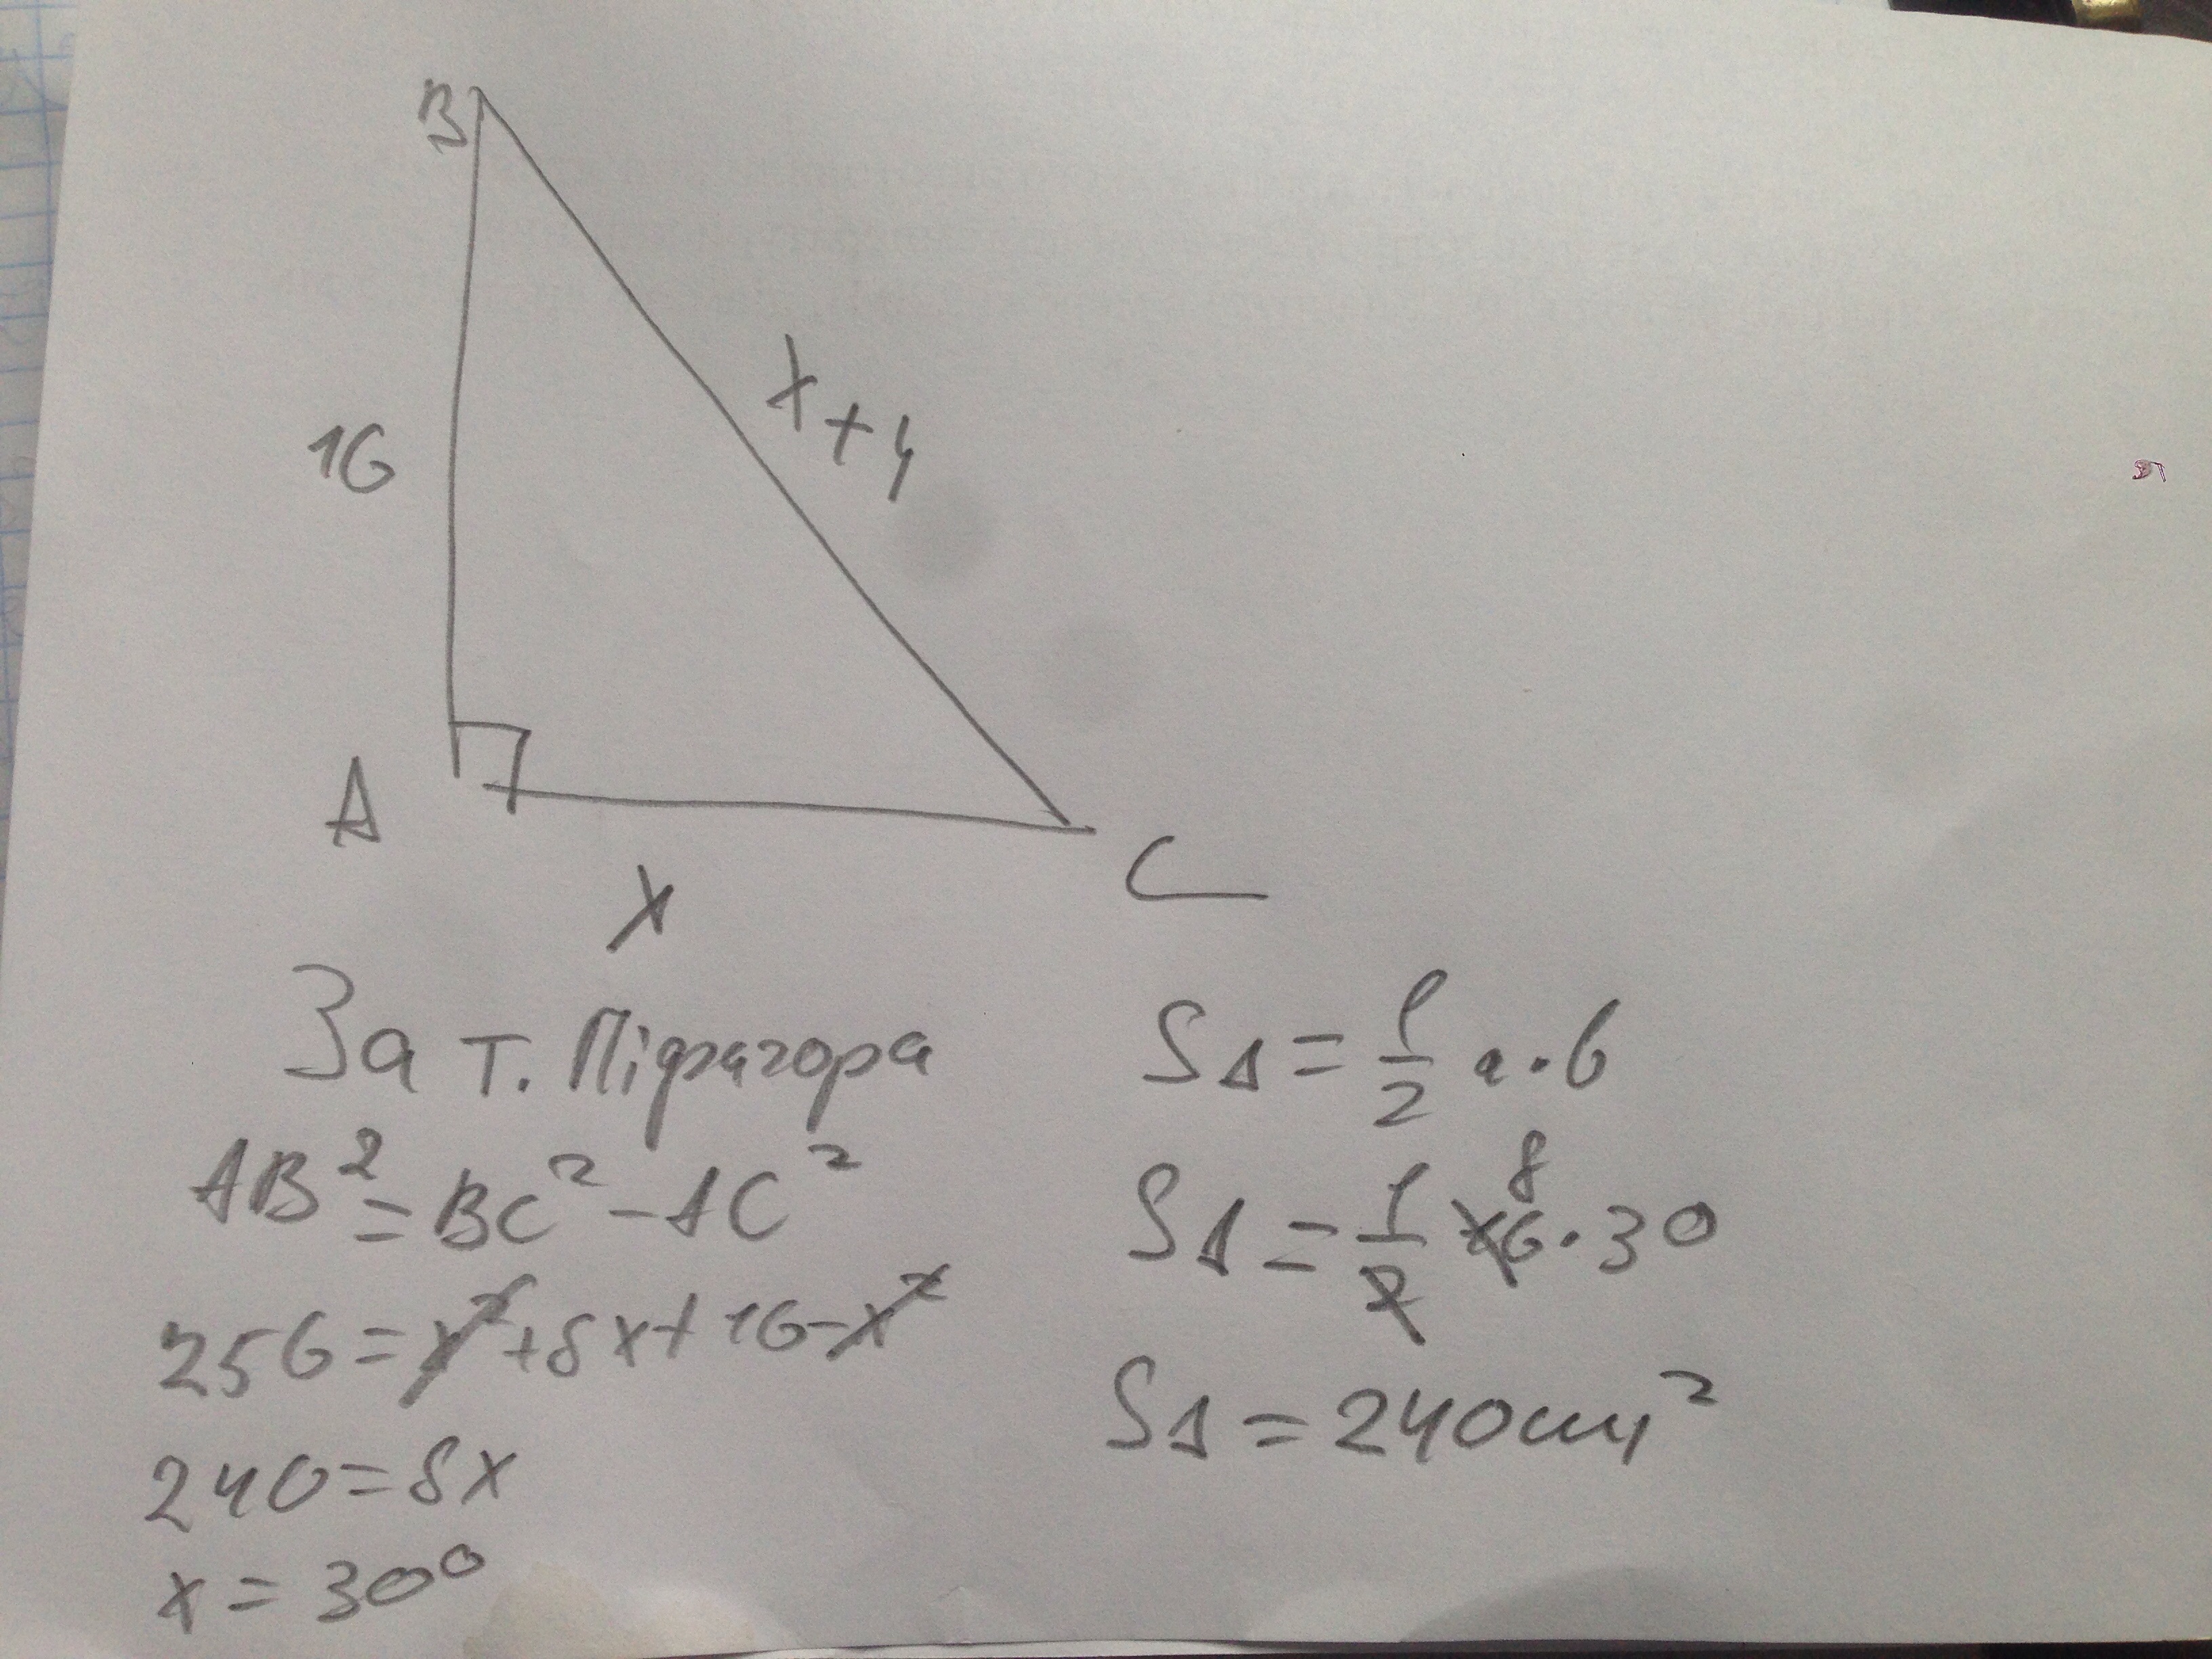 B
16
x+4
A
x
C
За т. Піфагора
AB² = BC² - AC²
256 = x² + 8x + 16 - x²
240 = 8x
x = 30°
S∆ = 1/2 a · b
S∆ = 1/2 16 · 30
8
S∆ = 240 см²